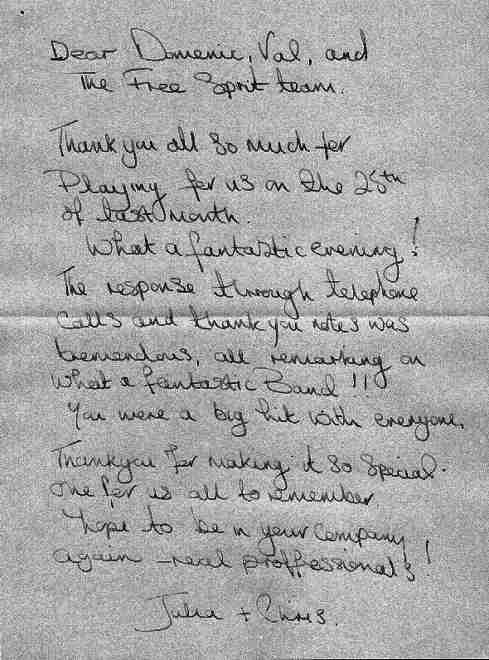 Dear Domenic, Val, and
The Free Spirit team.
Thankyou all so much for
Playing for us on the 25th
of last month.
What a fantastic evening!
The response through telephone
calls and thank you notes was
tremendous, all remarking on
what a fantastic Band!!
You were a big hit with everyone.
Thankyou for making it so special.
One for us all to remember.
hope to be in your company
again - real proffessional's!
Julia + Chris.